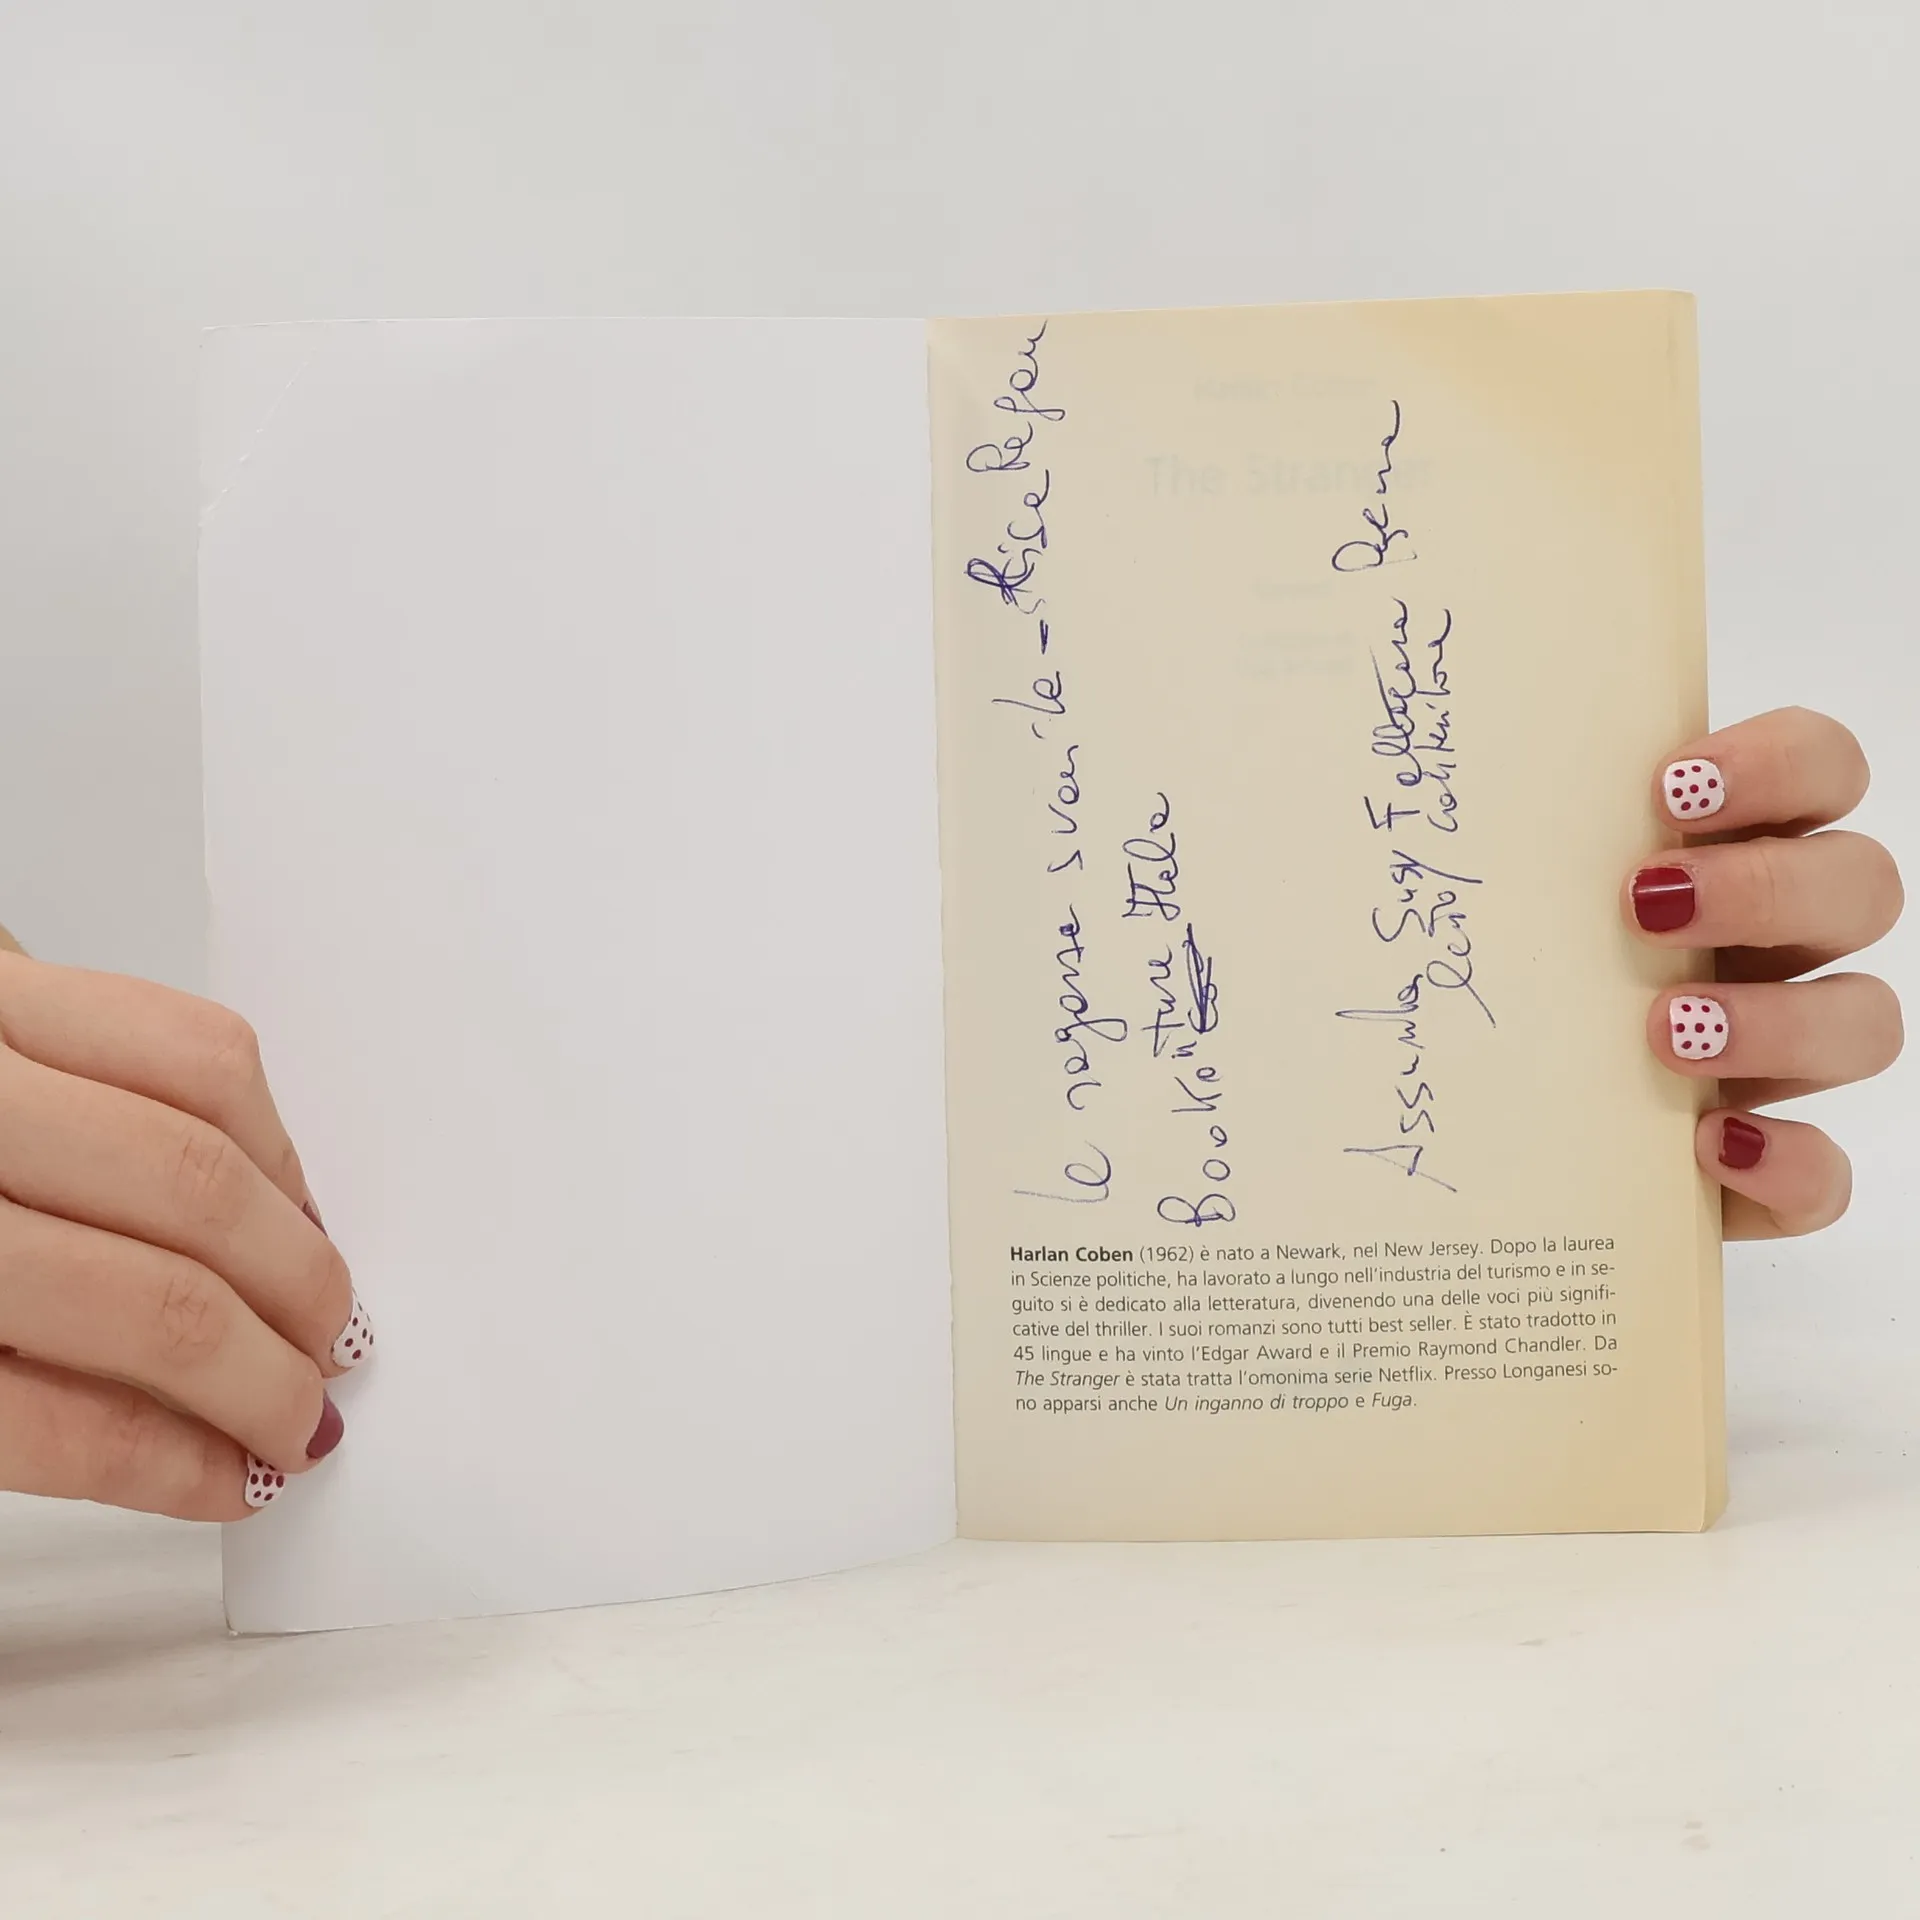 The Stranger
Le ragazze svanite - Lisa Regan
Bookouture Italia
Assunta Susy
Harlan Coben (1962) è nato a Newark, nel New Jersey. Dopo la laurea
in Scienze politiche, ha lavorato a lungo nell'industria del turismo e in se-
guito si è dedicato alla letteratura, divenendo una delle voci più signifi-
cative del thriller. I suoi romanzi sono tutti best seller. È stato tradotto in
45 lingue e ha vinto l'Edgar Award e il Premio Raymond Chandler. Da
The Stranger è stata tratta l'omonima serie Netflix. Presso Longanesi so-
no apparsi anche Un inganno di troppo e Fuga.